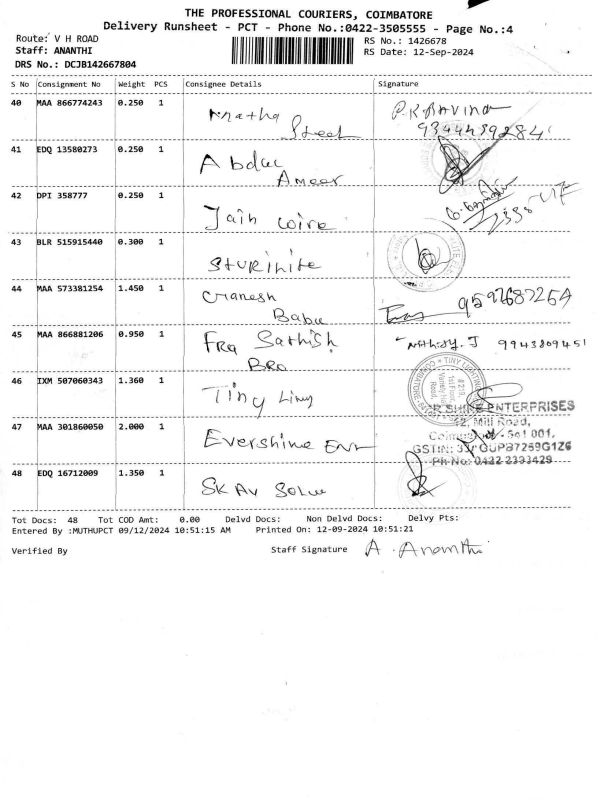 THE PROFESSIONAL COURIERS, COIMBATORE
Delivery Runsheet - PCT - Phone No.:0422-3505555 - Page No.:4
Route: V H ROAD
RS No.: 1426678
Staff: ANANTHI
RS Date: 12-Sep-2024
DRS No.: DCJB142667804
S No Consignment No Weight PCS Consignee Details Signature
40 MAA 866774243 0.250 1 Street
P.R Bavind
41 EDQ 13580273 0.250 1 Abdul
Ameer
42 DPI 358777 0.250 1 Jain wire
43 BLR 515915440 0.300 1
44 MAA 573381254 1.450 1 Ganesh
Babu
45 MAA 866881206 0.950 1 Fra Sathish
Bro
9943809451
46 IXM 507060343 1.360 1 Tiny
SHINE ENTERPRISES
42, Mill Road,
47 MAA 301860050 2.000 1 Evershine Ent
641 001.
GSTIN: 
Ph No: 0422 2393429
48 EDQ 16712009 1.350 1 SK AV
Tot Docs: 48 Tot COD Amt: 0.00 Delvd Docs: Non Delvd Docs: Delvy Pts:
Entered By :MUTHUPCT 09/12/2024 10:51:15 AM Printed On: 12-09-2024 10:51:21
Verified By Staff Signature A. Ananthi